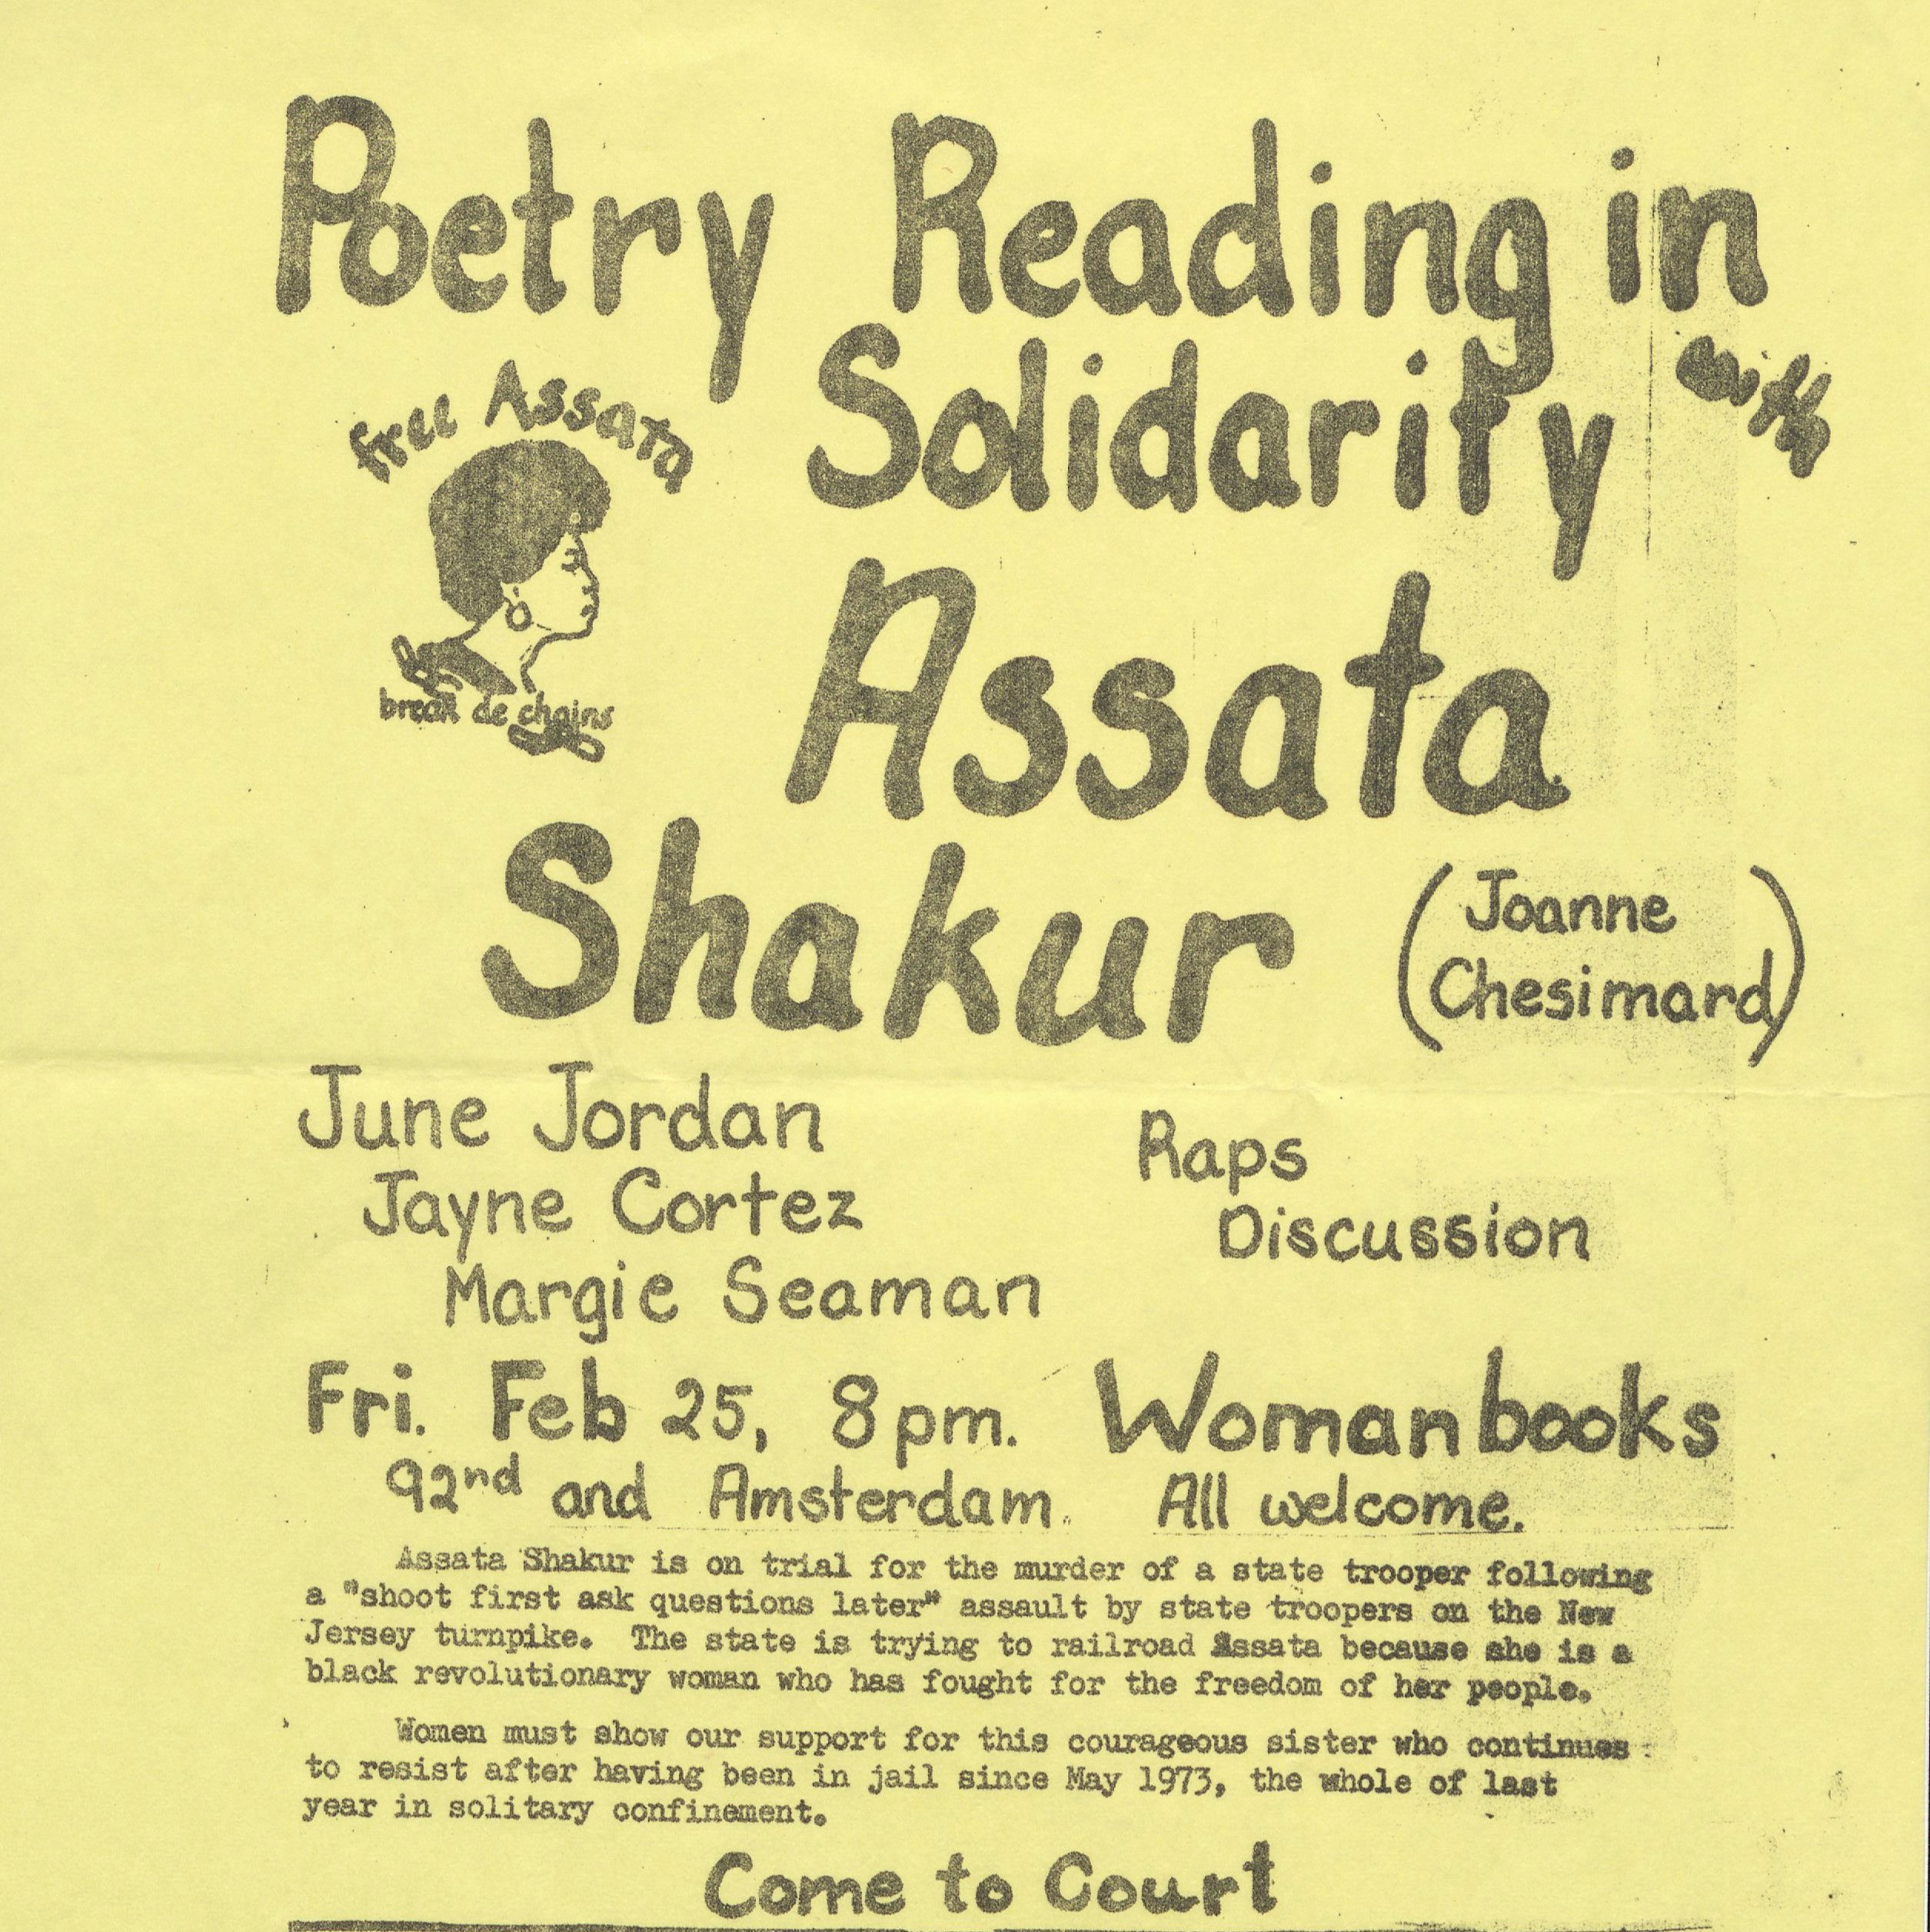 Poetry Reading in
Solidarity with
free Assata
break de chains
Assata
Shakur (Joanne Chesimard)
June Jordan
Jayne Cortez
Margie Seaman
Raps
Discussion
Fri. Feb 25, 8pm. Womanbooks
92nd and Amsterdam. All welcome.
Assata Shakur is on trial for the murder of a state trooper following
a "shoot first ask questions later" assault by state troopers on the New
Jersey turnpike. The state is trying to railroad Assata because she is a
black revolutionary woman who has fought for the freedom of her people.
Women must show our support for this courageous sister who continues
to resist after having been in jail since May 1973, the whole of last
year in solitary confinement.
Come to Court